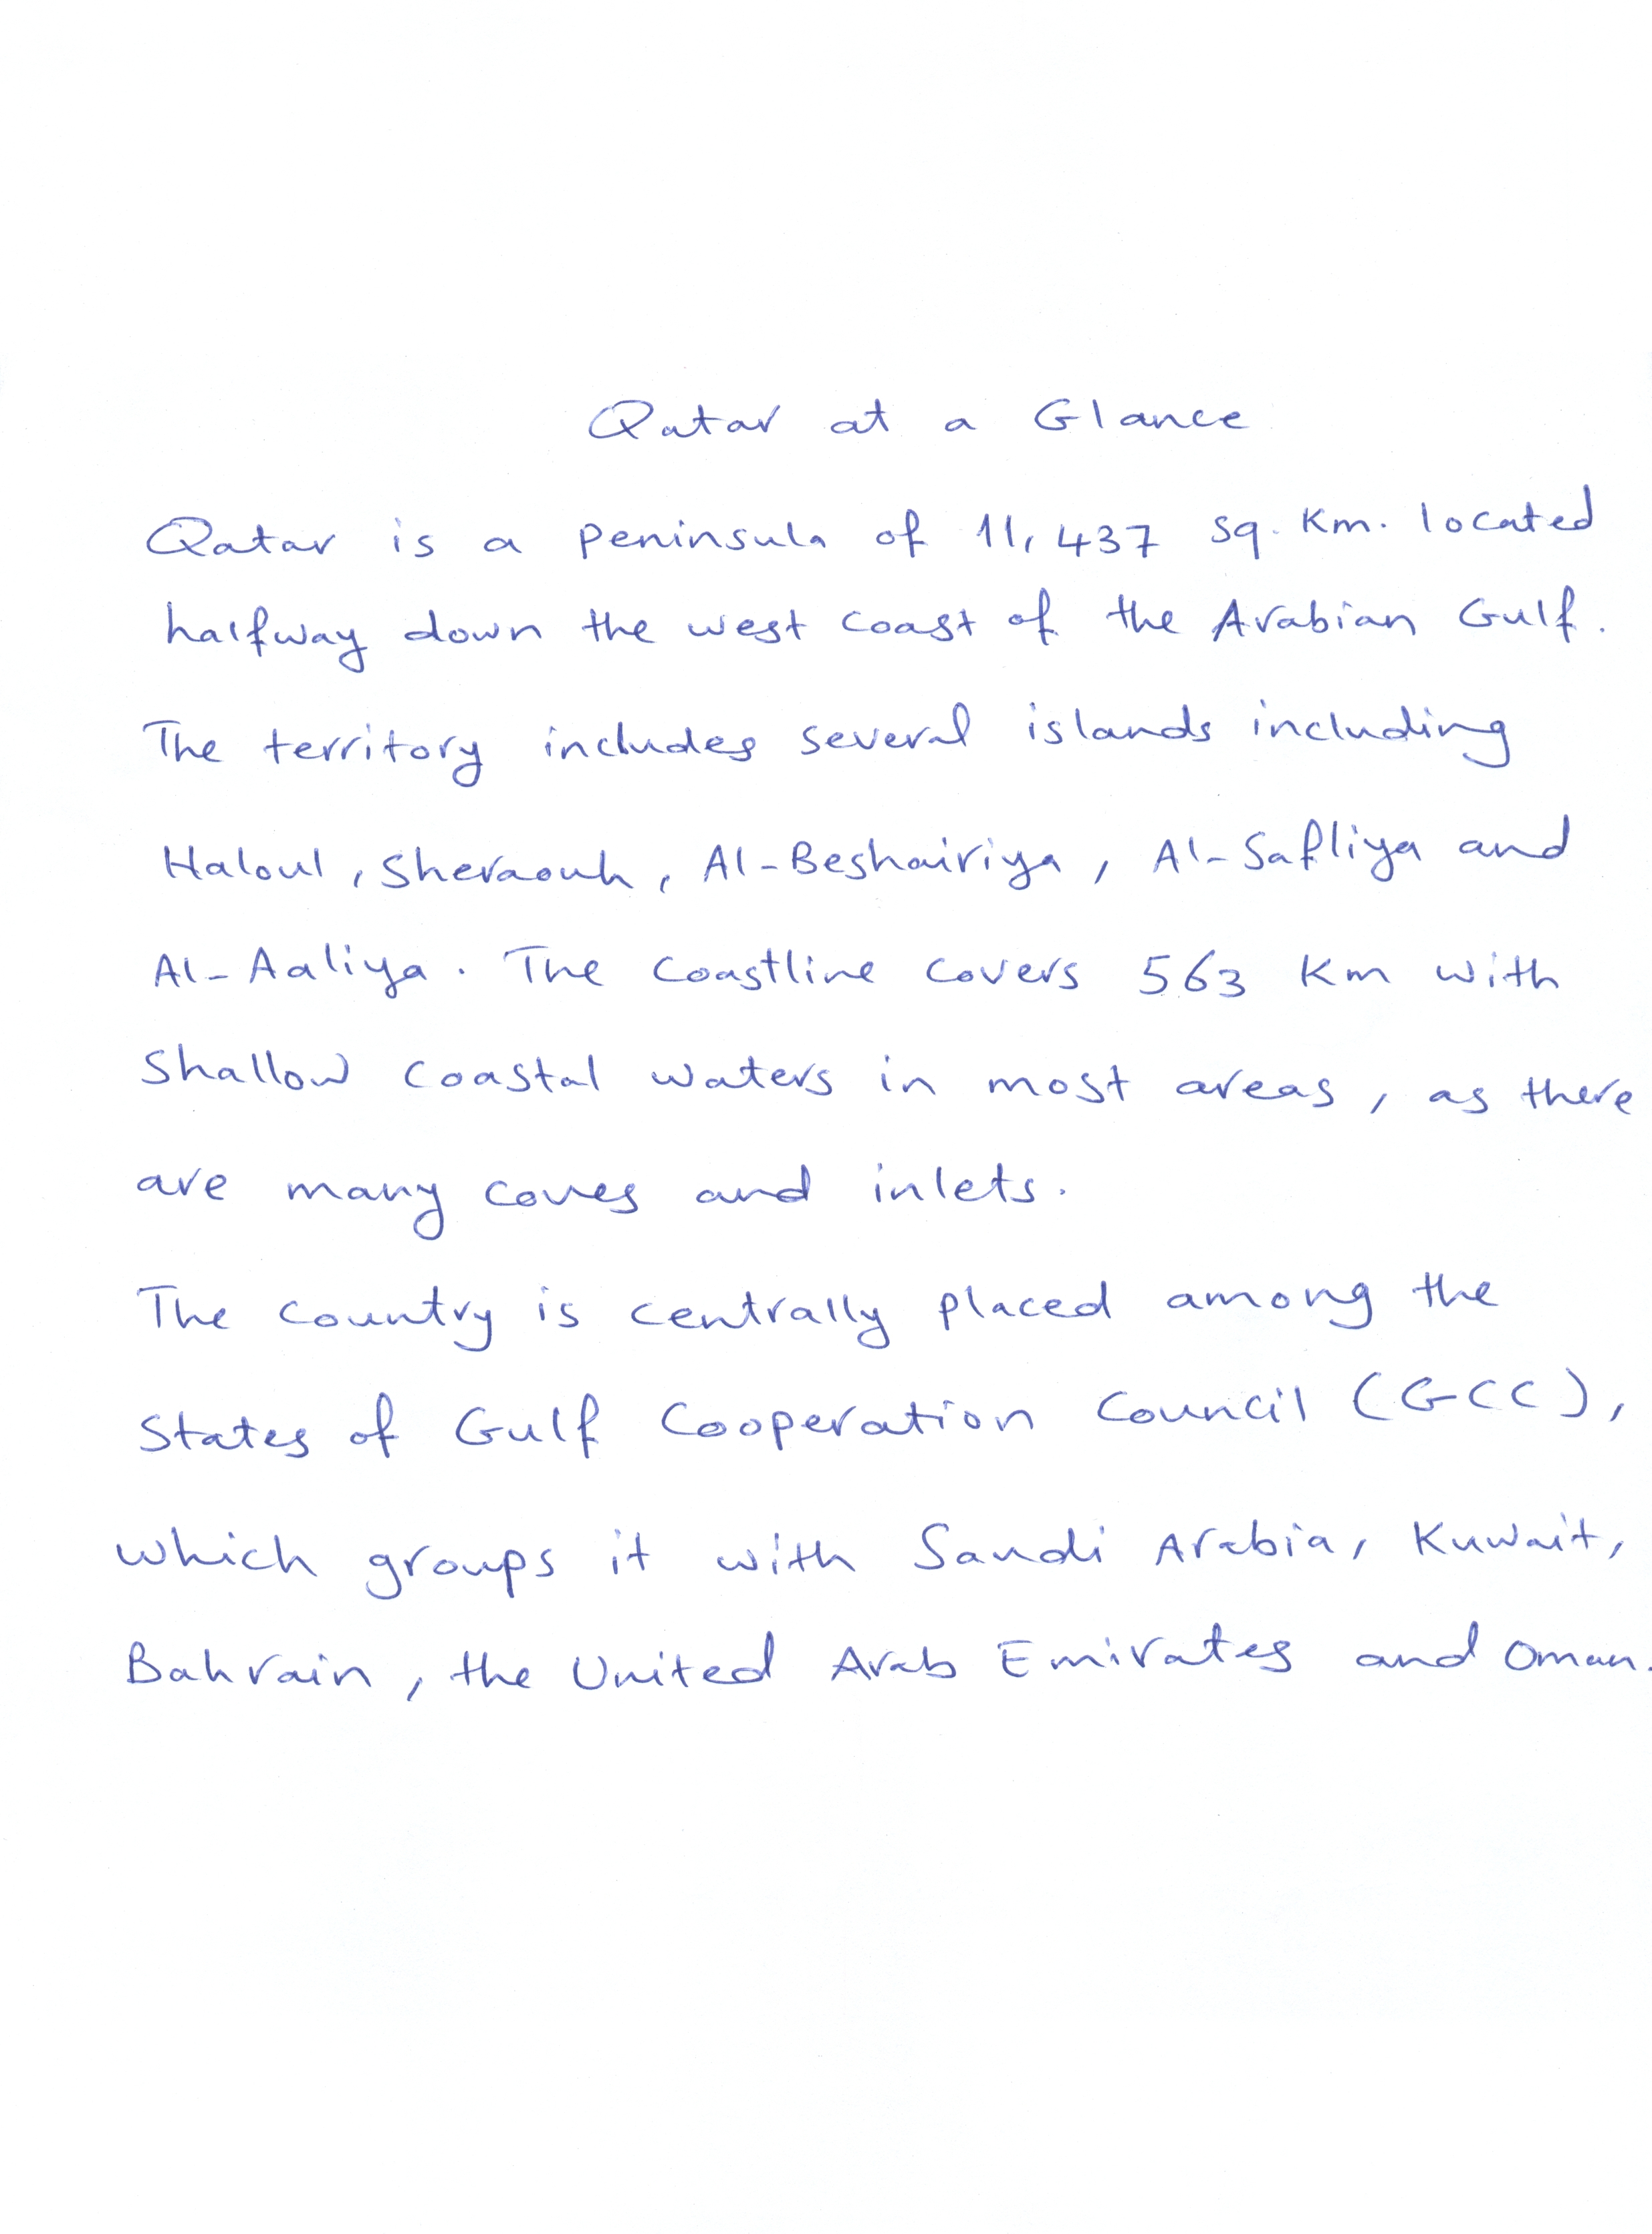 Qatar at a Glance
Qatar is a peninsula of 11,437 sq. Km. located
halfway down the west coast of the Arabian Gulf.
The territory includes several islands including
Haloul, Sheraouh, Al-Beshairiya, Al-Safliya and
Al-Aaliya. The coastline covers 563 Km with
shallow coastal waters in most areas, as there
are many coves and inlets.
The country is centrally placed among the
states of Gulf Cooperation Council (GCC),
which groups it with Saudi Arabia, Kuwait,
Bahrain, the United Arab Emirates and Oman.